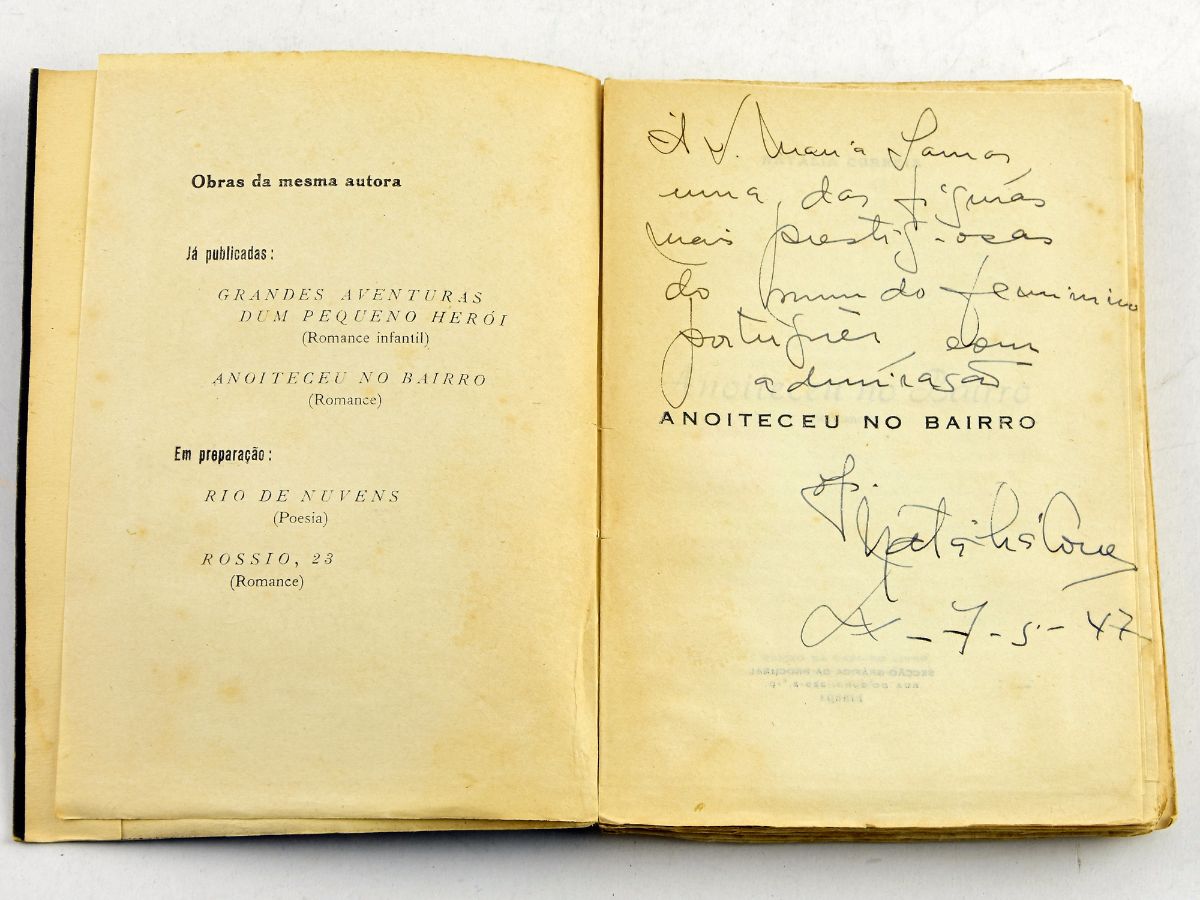 Obras da mesma autora
Já publicadas:
GRANDES AVENTURAS
DUM PEQUENO HERÓI
(Romance infantil)
ANOITECEU NO BAIRRO
(Romance)
Em preparação:
RIO DE NUVENS
(Poesia)
ROSSIO, 23
(Romance)
Maria Lamas,
uma das figuras
mais prestigiosas
do mundo feminino
português, com
admiração
ANOITECEU NO BAIRRO
Natália Correia
7-5-47